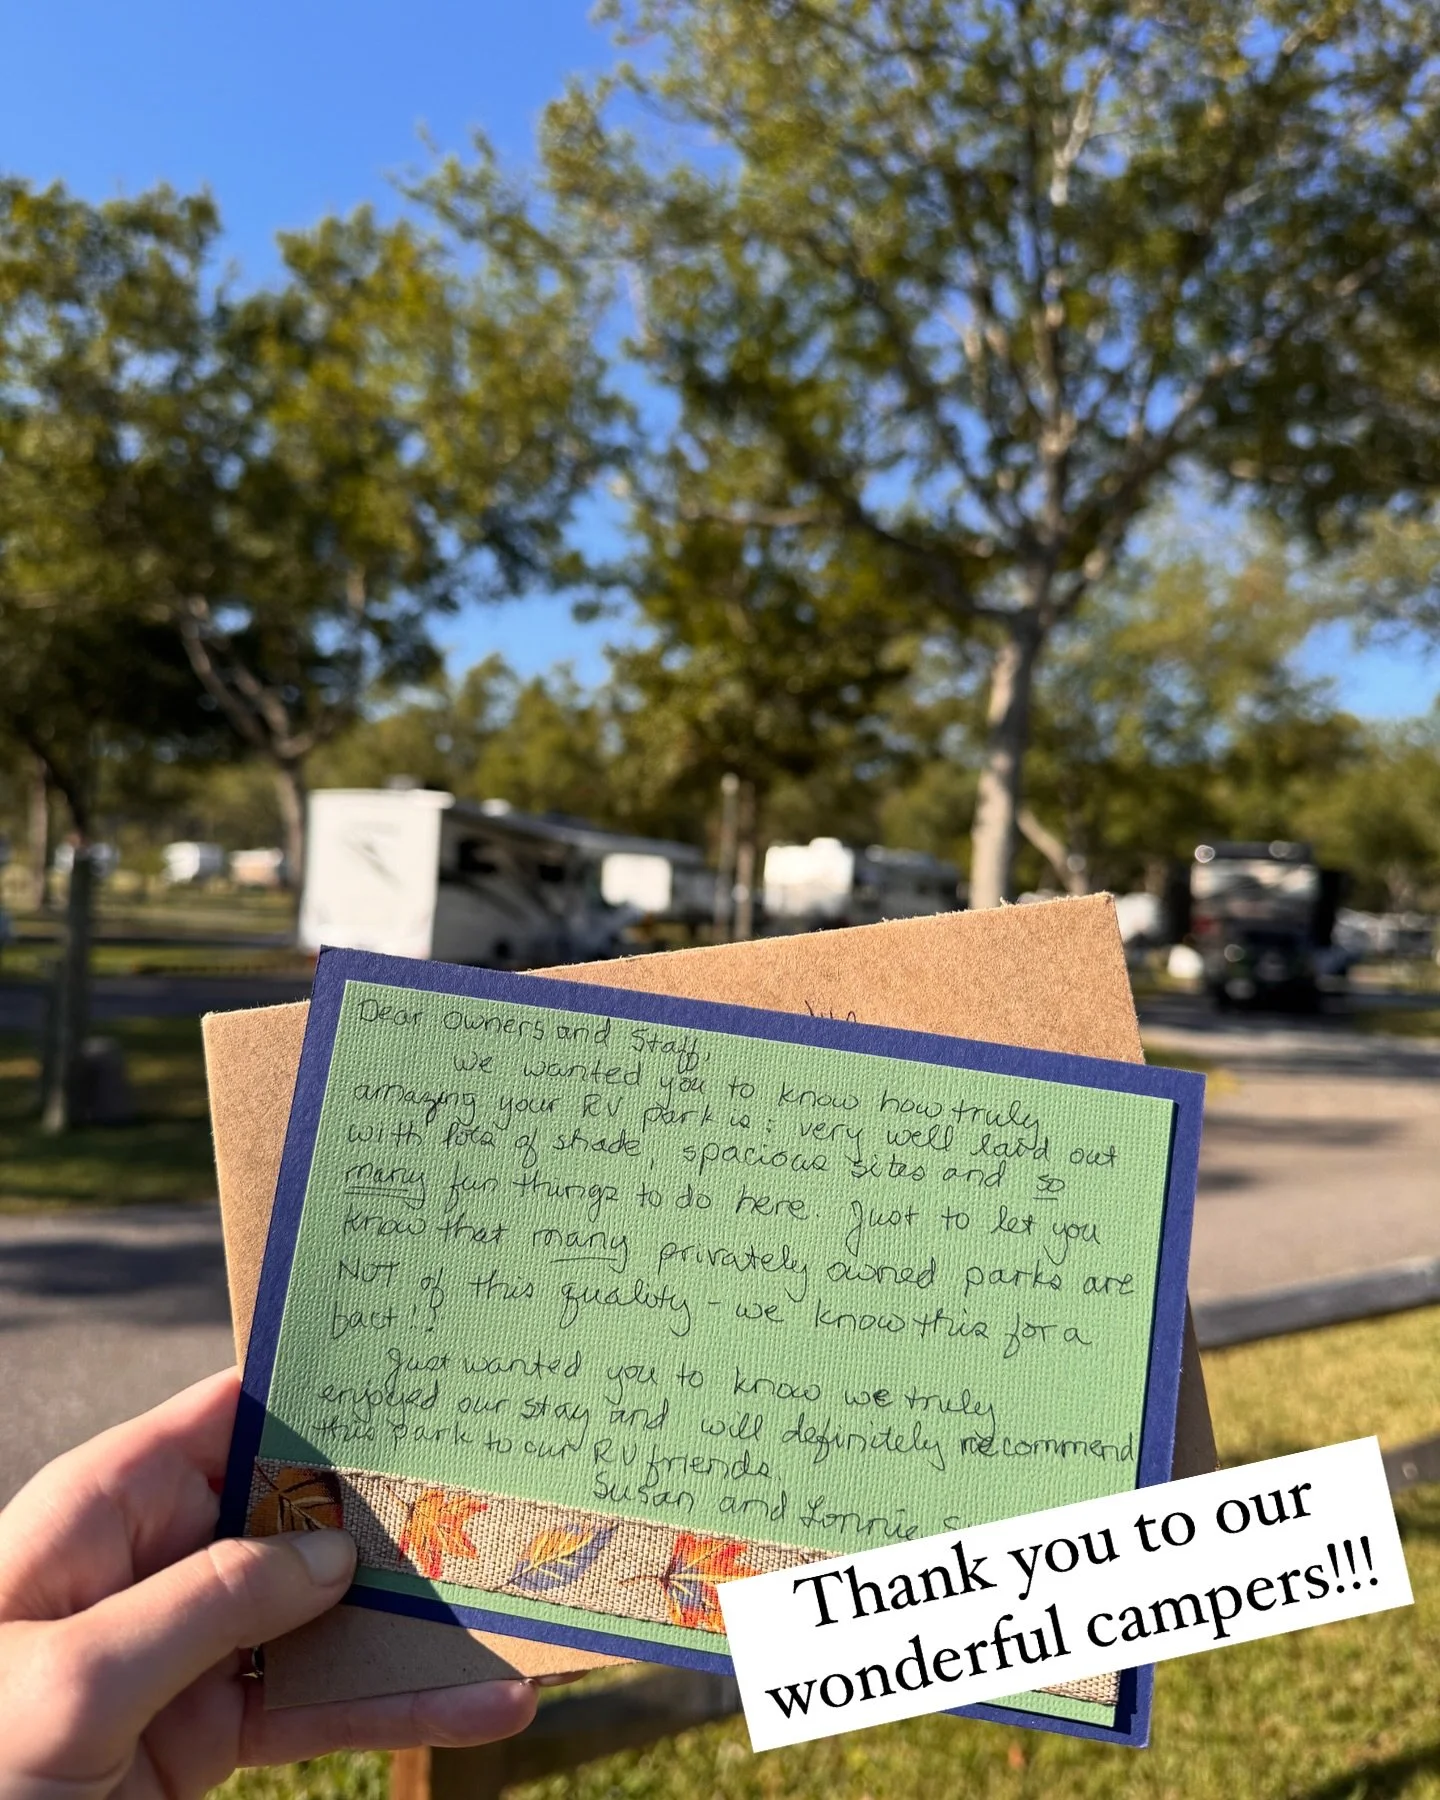 Dear owners and Staff,
We wanted you to know how truly
amazing your RV park is: very well laid out
with lots of shade, spacious sites and so
many fun things to do here. Just to let you
know that many privately owned parks are
NOT of this quality - we know this for a
fact!!
Just wanted you to know we truly
enjoyed our stay and will definitely recommend
this park to our RV friends.
Susan and Lonnie
Thank you to our
wonderful campers!!!